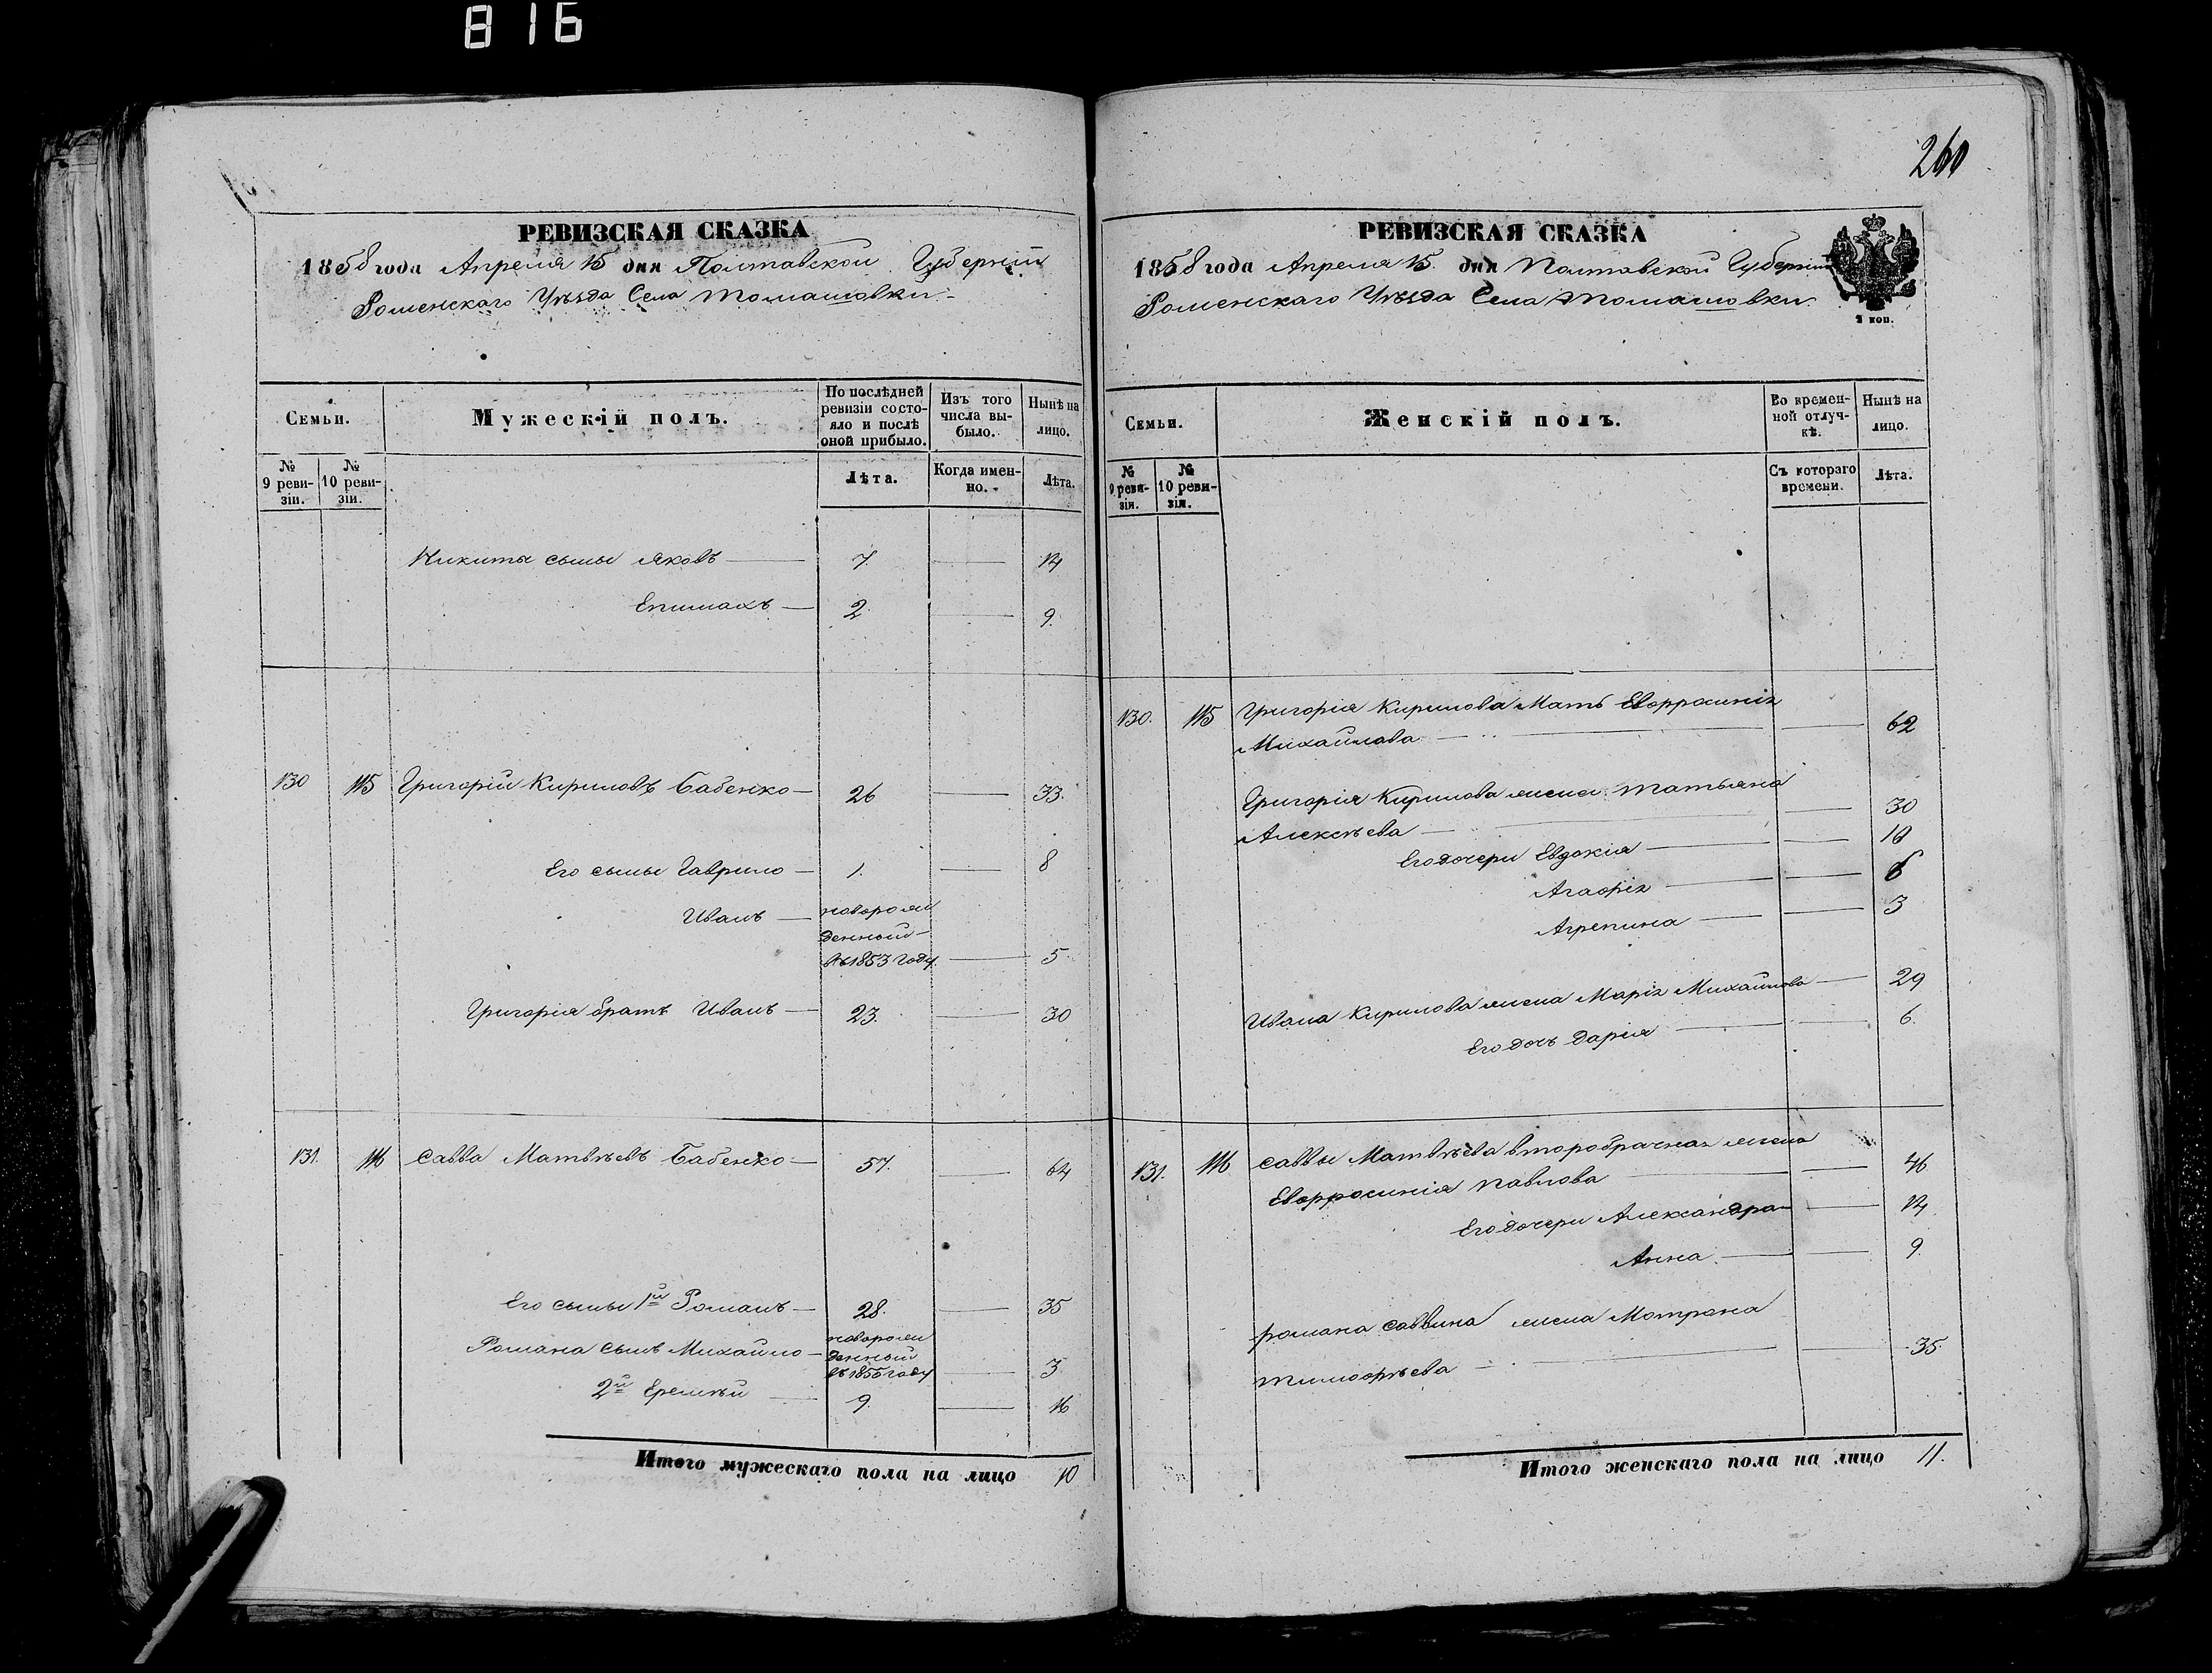 816
260
РЕВИЗСКАЯ СКАЗКА
1858 года Апреля 15 дня Полтавской Губерніи
Роменскаго Уѣзда Села Томашовки.
Семьи.
Мужескій полъ.
По послѣдней ревизіи состояло и послѣ оной прибыло.
Изъ того числа выбыло.
Нынѣ на лицо.
№ 9 ревизіи.
№ 10 ревизіи.
Лѣта.
Когда именно.
Лѣта.
Никиты сыны Яковъ — 7. — 14
Епимахъ — 2. — 9.
130 115 Григорій Кириловъ Бабенко — 26 — 33.
Его сыны Гаврило — 1. — 8
Иванъ — новорож
денный
въ 1853 году — 5
Григорія братъ Иванъ — 23. — 30
131. 116 Савва Матвѣевъ Бабенко — 57. — 64
Его сыны 1й Романъ — 28. — 35
Романа сынъ Михайло — новорож
денный
въ 1855 году — 3
2й Еремѣй — 9. — 16
Итого мужескаго пола на лицо 10
РЕВИЗСКАЯ СКАЗКА
1858 года Апреля 15. дня Полтавской Губерніи
Роменскаго Уѣзда Села Томашовки.
2 коп.
Семьи.
Женскій полъ.
Во временной отлучкѣ.
Нынѣ на лицо.
№ 9 ревизіи.
№ 10 ревизіи.
Съ котораго времени.
Лѣта.
130. 115 Григорія Кирилова Мать Евфросинія
Михайлова — 62
Григорія Кирилова жена Татьяна
Алексѣева — 30
Его дочери Евдокія — 10
Агафія — 6
Агрепина — 3
Ивана Кирилова жена Марія Михайлова — 29
Его дочь Дарія — 6.
131. 116 Саввы Матвѣева второбрачная жена
Евфросинія Павлова — 46
Его дочери Александра — 14
Анна. — 9.
Романа Саввина жена Мотрона
Тимофѣева — 35.
Итого женскаго пола на лицо 11.